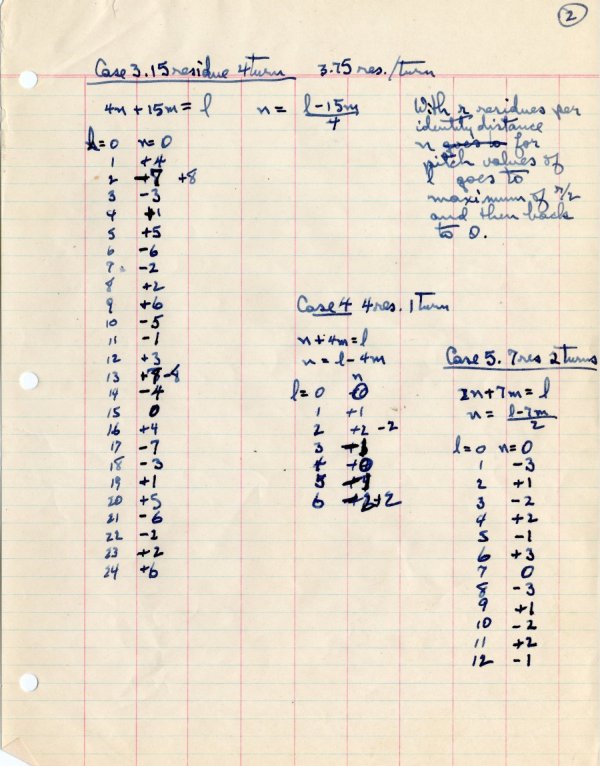 2
Case 3. 15 residue 4 turn 3.75 res./turn
4n + 15m = l n = l-15m/4
With r residues per
identity distance
n goes to for
pitch values of
l goes to
maximum of r/2
and then back
to 0.
l=0 n=0
1 +4
2 +7 +8
3 -3
4 +1
5 +5
6 -6
7 -2
8 +2
9 +6
10 -5
11 -1
12 +3
13 +8 -8
14 -4
15 0
16 +4
17 -7
18 -3
19 +1
20 +5
21 -6
22 -2
23 +2
24 +6
Case 4 4 res. 1 turn
n + 4m = l
n = l - 4m
n
l = 0 0
1 +1
2 +2 -2
3
4 0
5
6 +2
Case 5. 7 res 2 turns
2n + 7m = l
n = l-7m/2
l=0 n=0
1 -3
2 +1
3 -2
4 +2
5 -1
6 +3
7 0
8 -3
9 +1
10 -2
11 +2
12 -1